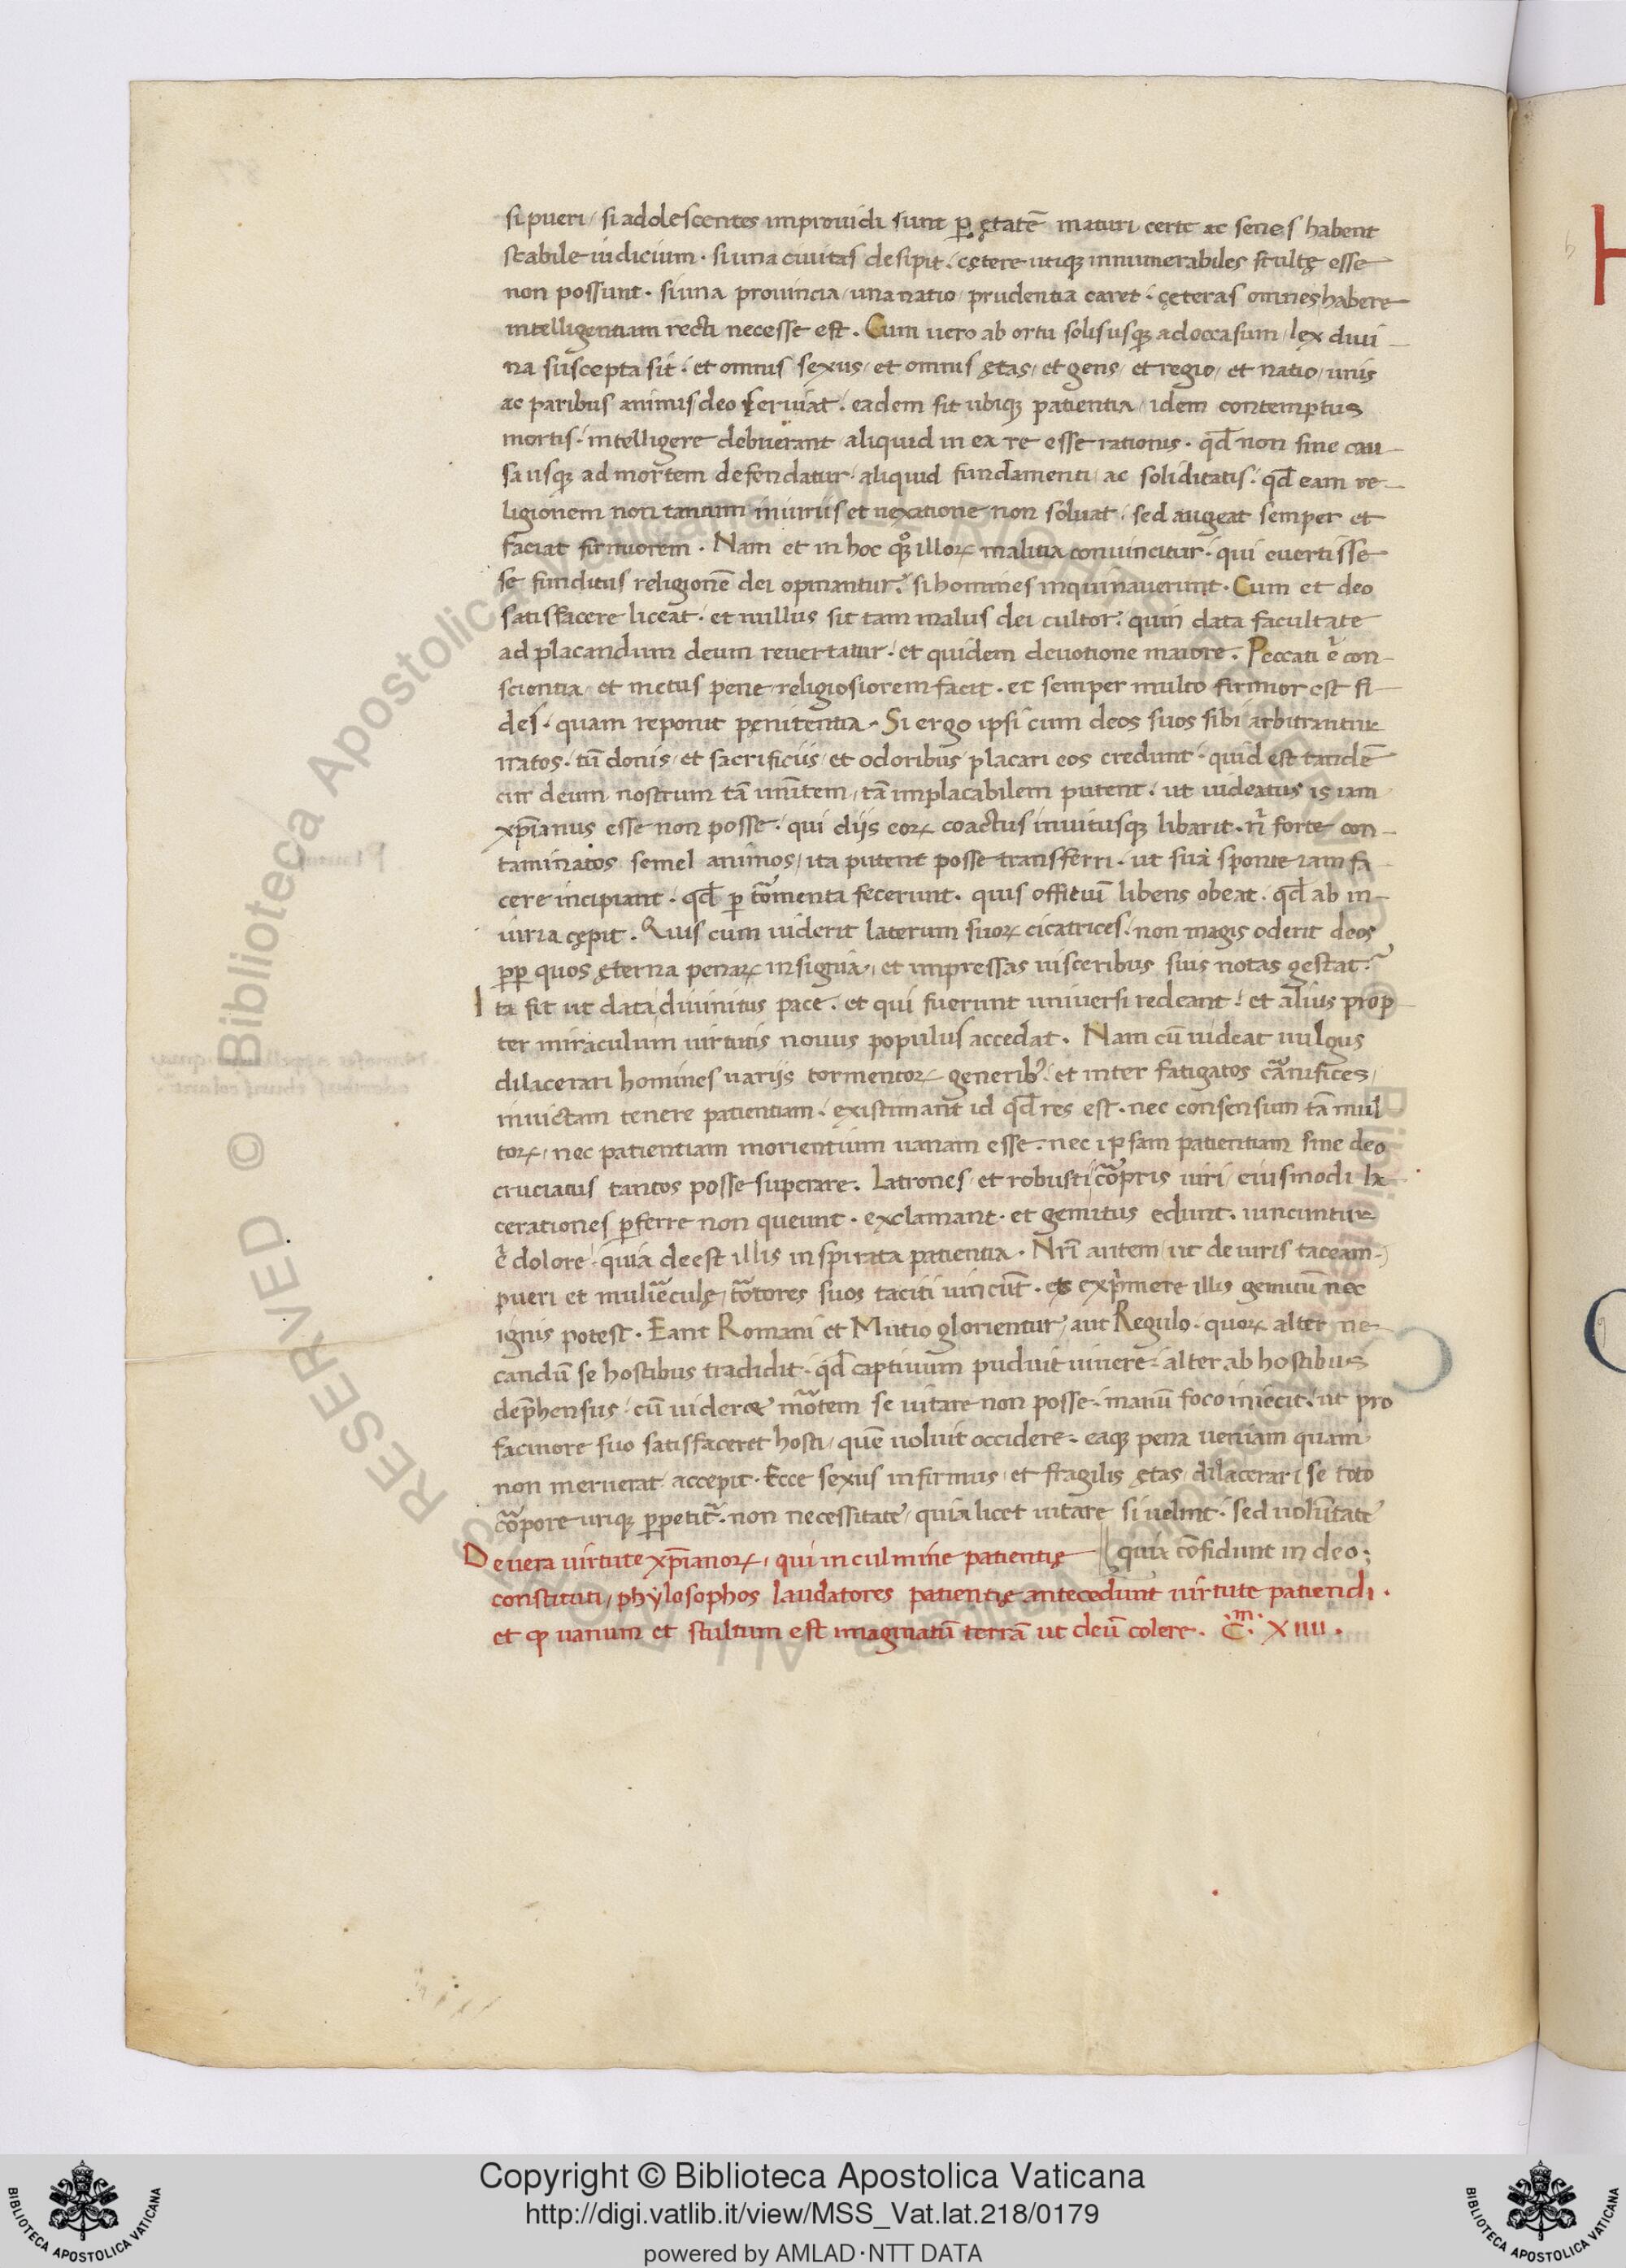 si pueri / si adolescentes improuidi sunt ꝑ ętatē maturi certe ac senes habent
stabile iudicium · si una ciuitas desipit · cętere utiqꝫ innumerabiles stultę esse
non possunt · si una prouincia / una natio / prudentia caret · cęteras omnes habere
intelligentiam recti necesse est . Cum uero ab ortu solis usqꝫ ad occasum / lex diui-
na suscepta sit · et omnis sexus / et omnis ętas / et gens / et regio / et natio / unis
ac paribus animis deo seruiat · eadem sit ubiqꝫ patientia / idem contemptus
mortis · intelligere debuerant aliquid in ea re esse rationis · qđ non sine cau-
sa usqꝫ ad mortem defendatur · aliquid fundamenti ac soliditatis · qđ eam re-
ligionem non tantum iniuriis et uexatione non soluat · sed augeat semper et
faciat firmiorem . Nam et in hoc qꝫ illoꝝ malitia conuincitur · qui euertisse
se funditus religionē dei opinantur · si homines inquinauerunt · Cum et deo
satisfacere liceat · et nullus sit tam malus dei cultor · quin data facultate
ad placandum deum reuertatur · et quidem deuotione maiore . Peccati .n. con-
scientia / et metus pene / religiosiorem facit · et semper multo firmior est fi-
des · quam reponit pęnitentia . Si ergo ipsi cum deos suos sibi arbitrantur
iratos · tn̄ donis / et sacrificiis / et odoribus / placari eos credunt · quid est tandē
cur deum nostrum tā īmitem / tā implacabilem putent · ut uideatur is iam
xp̄ianus esse non posse · qui diis eoꝝ coactus inuitusqꝫ libarit · n̄ forte con-
taminatos semel animos / ita putent posse transferri · ut sua sponte iam fa-
cere incipiant · qđ ꝑ tormenta fecerunt · quis offitiū libens obeat · qđ ab in-
iuria cępit . Quis cum uiderit laterum suoꝝ cicatrices · non magis oderit deos
ꝓꝑ quos ęterna penaꝝ insignia / et impressas uisceribus suis notas gestat?
Ita fit ut data diuinitus pace · et qui fuerunt uniuersi redeant · et alius prop-
ter miraculum uirtutis nouus populus accedat . Nam cū uideat uulgus
dilacerari homines uariis tormentoꝝ generibꝫ · et inter fatigatos carnifices /
inuictam tenere patientiam · existimant id qđ res est · nec consensum tā mul
toꝝ / nec patientiam morientium uanam esse · nec ipsam patientiam sine deo
cruciatus tantos posse superare . Latrones / et robusti corporis uiri / eiusmodi la-
cerationes ꝑferre non queunt · exclamant · et gemitus edunt · uincuntur
.n. dolore · quia deest illis inspirata patientia . Nr̄i autem / ut de uiris taceam /
pueri et mulierculę / tortores suos taciti uincūt · et exprimere illis gemitū nec
ignis potest . Eant Romani et Mutio glorientur / aut Regulo · quoꝝ alter ne-
candū se hostibus tradidit · qđ captiuum puduit uiuere · alter ab hostibus
dep̄hensus · cū uideret mortem se uitare non posse · manū foco iniecit · ut pro
facinore suo satisfaceret hosti / quē uoluit occidere · eaqꝫ pena ueniam quam
non meruerat accepit · Ecce sexus infirmus / et fragilis ętas / dilacerari se toto
corpore uriqꝫ ꝑpetitur · non necessitate / quia licet uitare si uelint · sed uoluntate
De uera uirtute xp̄ianoꝝ / qui in culmine patientię quia cōfidunt in deo ;
constituti / phylosophos laudatores patientię antecedunt uirtute patiendi .
et ꝙ uanum et stultum est imaginatū terrā ut deū colere . C.m XIIII .
RESERVED © Biblioteca Apostolica Vaticana
Copyright © Biblioteca Apostolica Vaticana
http://digi.vatlib.it/view/MSS_Vat.lat.218/0179
powered by AMLAD·NTT DATA
BIBLIOTECA APOSTOLICA VATICANA
BIBLIOTECA APOSTOLICA VATICANA